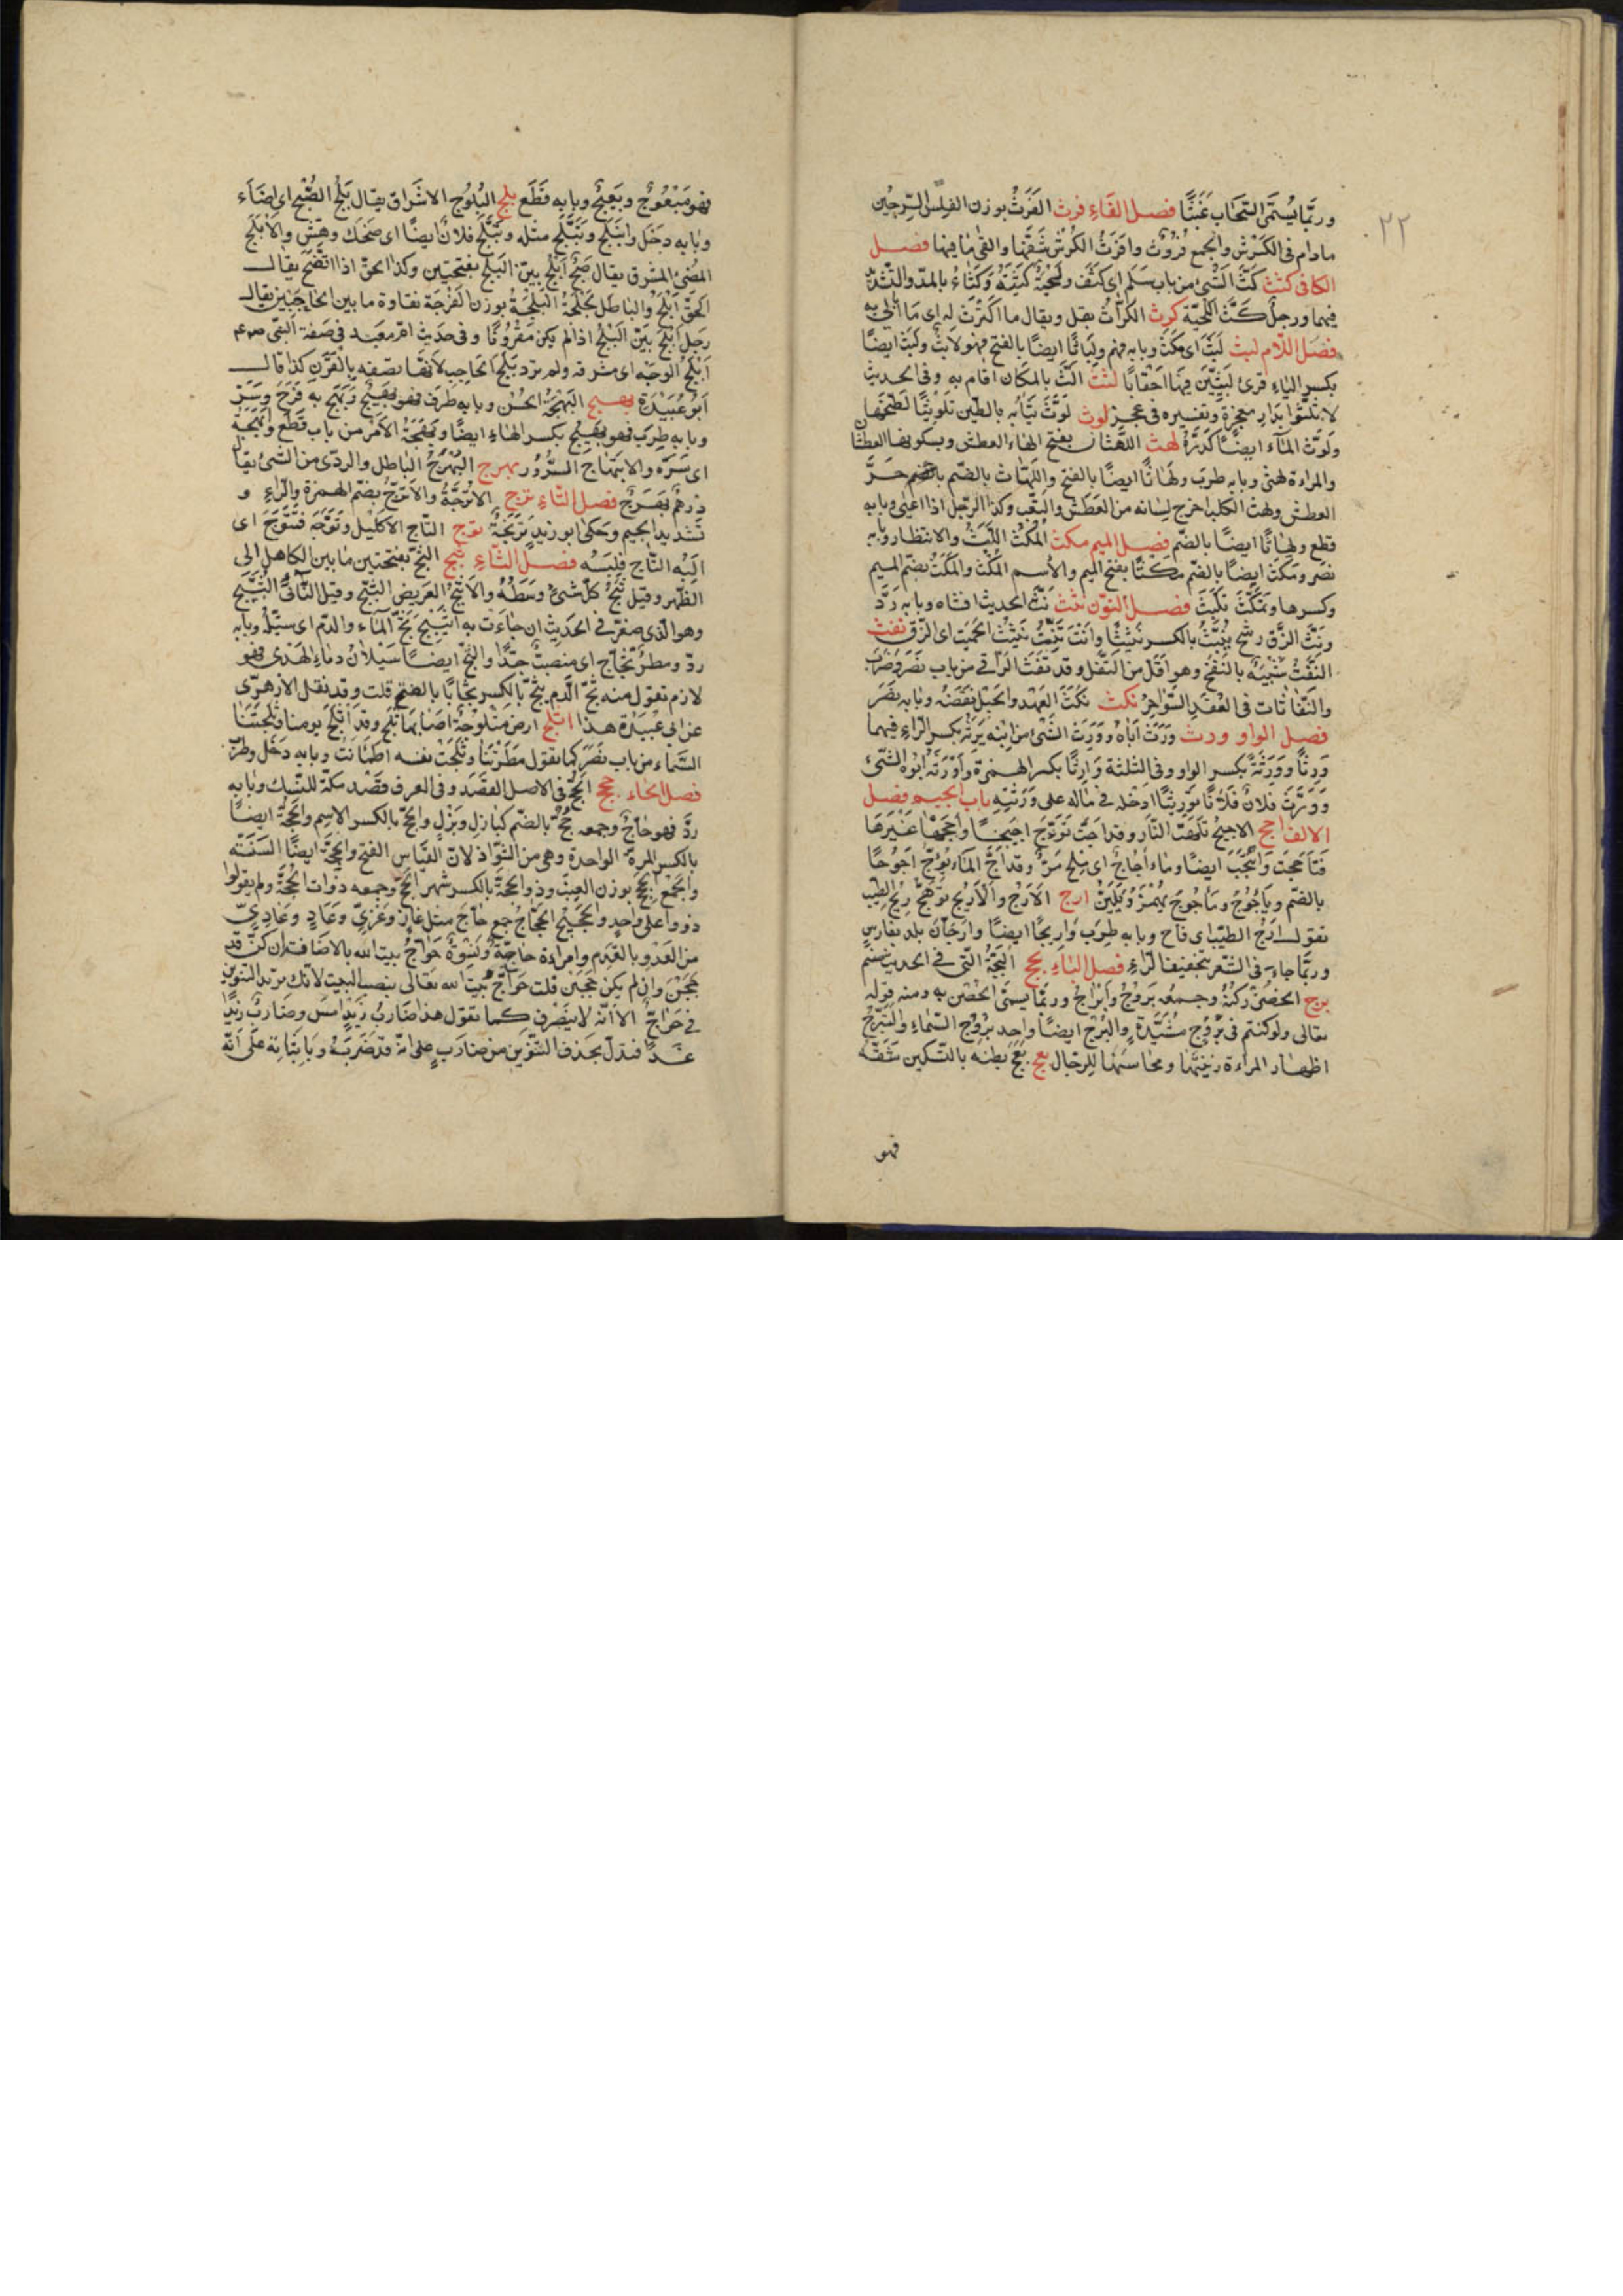 ٢٢
وربّما يُسمّى السّحاب غَيْثًا فصل الفَاءِ فرث الفَرْثُ بوزن الفلس السّرجين
مادام فى الكَرْش والجمع فُرُوث وافرَثَ الكَرْش شَقّها والقى ما فيها فصل
الكاف كثث كَثَّ الشئ من باب سَلِم اى كَثُفَ ولحيةٌ كَثّة وكَثّاءُ بالمدّ والتّشديد
فيهما ورجلٌ كَثّ اللّحية كرث الكرّاثُ بقل ويقال ما اكترث له اى ما اُبالى به
فصل اللّام لبث لَبِثَ اى مَكَثَ وبابه فهم ولَبَاثًا ايضًا بالفتح فهو لابثٌ ولَبِثٌ ايضًا
بكسر الباءِ قرئ لَبِثِينَ فِيهَا اَحْقَابًا لثث اَلَثَّ بالمكان اقام به وفى الحديث
لا تُلِثُّوا بِدَارِ معجزة وتفسيره فى عجز لوث لَوّثَ ثيَابَه بالطّين تَلْوِيثًا لَطّخَها
ولَوّث الماء ايضًا كَدّرَهُ لهث اللّهَثان بفتح الهاء العطش وبسكونها العطشان
والمراءة لَهْثى وبابه طرب ولَهَاثًا ايضًا بالفتح واللّهاث بالضّم حَرّ
العطش ولهث الكلب اخرج لسانه من العَطَش والتّعب وكذا الرّجل اذا اعيى وبابه
قطع ولُهَاثًا ايضًا بالضّم فصل الميم مكث المُكْثُ اللّبْثُ والانتظار وبابه
نصَر ومَكُثَ ايضًا بالضّم مَكْثًا بفتح الميم والاسم المُكْث والمِكْثُ بضمّ الميم
وكسرها وتَمَكّثَ تَلَبّثَ فصل النّون نثث نَثَّ الحديث افشاه وبابه رَدّ
ونَثّ الزّق رشح يَنِثُّ بالكسر نَثِيثًا وانْتَ تَنِثُّ نَثِيثَ الحَمِيت اى الزّق نفث
النّفْثُ شبيه بالنّفْخ وهو اَقَلّ من التّفل وقد نَفَثَ الرّاقى من باب نَصَرَ وضَرَب
والنّفّاثات فى العُقَدِ السّواحِرُ نكث نَكَثَ العَهْد والحَبْل نقضَهُ وبابه نصَر
فصل الواو ورث وَرِثَ اَباهُ ووَرِثَ الشّئ من ابيه يَرِثه بكسر الرّاءِ فيهما
وِرْثًا ووِرَثَةً بكسر الواو وفى الثلثة واِرْثًا بكسر الهمزة واَوْرَثَه ابُوه الشّئ
ووَرّثَ فلانٌ فلانًا تَوْرِيثًا ادخله فى ماله على وَرَثَتِه باب الجيم فصل
الالف اجج الاجيج تَلَهُّب النّار وقد اجّت تَؤُجّ اجيجًا واجّجَها غَيْرُها
فتاجّجت وائتجّت ايضًا وماء اُجاجٌ اى مِلح مُرّ وقد اَجّ الماءُ يَؤُجّ اُجُوجًا
بالضّم ويَاْجُوجُ ومَاْجُوجُ يُهْمَزُ ويُلَيّنُ ارج الاَرَجُ والاَرِيجُ توهّج رِيحِ الطّيب
تقول ارِجَ الطّيب اى فاح وبابه طرِبَ واَرِيجًا ايضًا وارّجَانُ بلد بفارس
وربّما جاء فى الشّعر بتخفيف الرّاءِ فصل البَاءِ بجج البَجّةُ الّتى فى الحديث صنم
برج الحِصْن رُكْنُهُ وجمعُه بُرُوجٌ واَبْرَاجٌ وربّما يسمّى الحُصْن به ومنه قوله
تعالى ولو كنتم فى بُرُوجٍ مُشَيَّدَةٍ والبُرْج ايضًا واحد بُرُوج السّماءِ والتّبَرّجُ
اظهار المراءة زينَتَها ومحاسنَها للرّجال بعج بَعَجَ بطنه بالسّكين شَقّه
فهو
فهو مَبْعُوجٌ وبَعِيجٌ وبابه قَطَع بلج البُلُوج الاشراق يقال بَلَجَ الصُّبْح اى اضَاءَ
وبابه دخَل وابْتَلَجَ وتَبَلّجَ مثله وتَبَلّج فلانٌ ايضًا اى ضحك وهشّ والاَبْلَج
المُضئ المشرق يقال صُبحٌ اَبْلَج بيّن البَلَج بفتحتين وكذا الحقّ اذا اتّضح يقال
الحقّ اَبْلَج والباطل لَجْلَج البُلْجَةُ بوزن الفُرْجَة نقاوة ما بين الحاجبَيْن يقال
رجل اَبْلَجُ بيّن البَلَج اذا لم يكن مقرُونًا وفى حديث امّ معبد فى صفة النبّى صلعم
اَبْلَجُ الوَجْه اى مشرقه ولم ترد بَلَجَ الحاجب لانّها تصفه بالقَرَن كذا قال
ابو عُبَيْدة بهج البَهْجَةُ الحُسْن وبابه ظَرُف فهو بهيجٌ وبَهِجَ به فَرِحَ وسُرّ
وبابه طرِب فهو بَهِجٌ بكسر الهاءِ ايضًا وبَهَجَه الاَمْر من باب قَطَع واَبْهَجَهُ
اى سَرّه والابتهاج السُّرُور بهرج البَهْرَجُ الباطل والردّى من الشّئ يقال
دِرهمٌ بَهْرَجٌ فصل التّاءِ ترج الاُتْرُجّةُ والاُتْرُجّ بضمّ الهمزة والرّاءِ و
تشديد الجيم وحكى ابو زيد تُرُنْجَةٌ توج التّاج الاكليل وتَوّجَهُ فتتوّجَ اى
اَلْبَسَهُ التّاج فلبِسَه فصل الثّاءِ ثبج الثَّبَج بفتحتين ما بين الكاهل الى
الظّهر وقيل ثَبَجُ كلّ شئ وسَطُهُ والاَثْبَجُ العَريض الثّبَج وقيل النّاتئُ الثّبَج
وهو الّذى صُغّر فى الحديث ان جاءَت به اُثَيْبِجَ ثجج ثجّ الماء والدّم اى سيّله وبابه
ردّ ومطرٌ ثجّاج اى منصبٌّ جدًّا والثّجّ ايضًا سَيَلانُ دماءِ الهَدْى وهو
لازم تقول منه ثجّ الدّم يثِجّ بالكسر ثجاجًا بالفتح قلت وقد نقل الازهرّى
عن ابى عُبَيدة هذا ثلج ارض مَثْلُوجَةٌ اصابها ثَلْج وقد اثْلَجَ يومنا وثَلَجَتْنا
السّماء من باب نصَر كما تقول مَطَرَتْنا وثَلَجَتْ نفسه اطمأنت وبابه دخَل وطرب
فصل الحَاءِ حجج الحَجّ فى الاصل القصْد وفى العرف قصْد مكّة للنّسك وبابه
ردّ فهو حاجّ وجمعه حُجّ بالضّم كبازِل وبُزْلٍ والحِجّ بالكسر الاسم والحِجّة ايضًا
بالكسر المرّة الواحدة وهى من الشّواذ لانّ القياس الفتح والحِجّة ايضًا السَّنَة
والجمع الحِجَج بوزن العِنَب وذو الحِجّة بالكسر شهر الحَجّ وجمعه ذوات الحِجّة ولم يقولوا
ذووا على واحد والحَجِيج الحُجّاجُ جمع حاجّ مثل غازٍ وغَزِىّ وعَادٍ وعَدِىّ
من العَدْوِ بالقَدَم وامراءة حاجّةٌ ونِسْوَةٌ حَوَاجُّ بيتِ الله بالاضافة ان كنّ قد
حَجَجْنَ وان لم يكن حَجَجْنَ قلت حَوَاجُّ بيتَ الله تعالى بنصب البيت لانّك تريد التنوين
فى حَوَاجّ الا انّه لا ينصَرِف كما تقول هذا ضاربُ زَيْدٍ اَمْسِ وضاربٌ زيدًا
غدًا فتدلّ بحذف التّنْوين من ضارب على انّه قد ضَرَبَهُ وبِاِثْبَاتِهِ على اَنّه